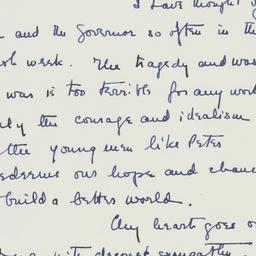 I have thought
and the Governor so often in the
week. The tragedy and was
was is too terrible for any
the courage and idealism
the young men like Peter
our hope and chance
build a better world.
My heart goes o
deepest sympathy